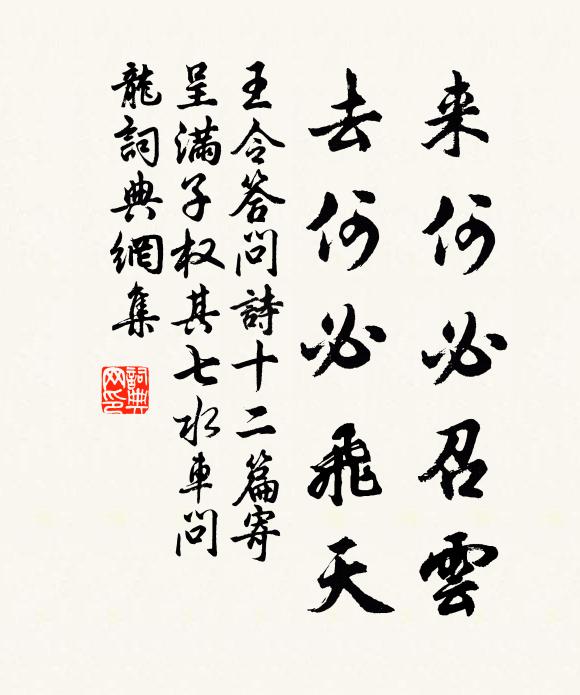 来何必召雲
去何必飛天
王令答問詩十二篇寄
呈満子权其七水車問
龍詞典網集
詞典
网印